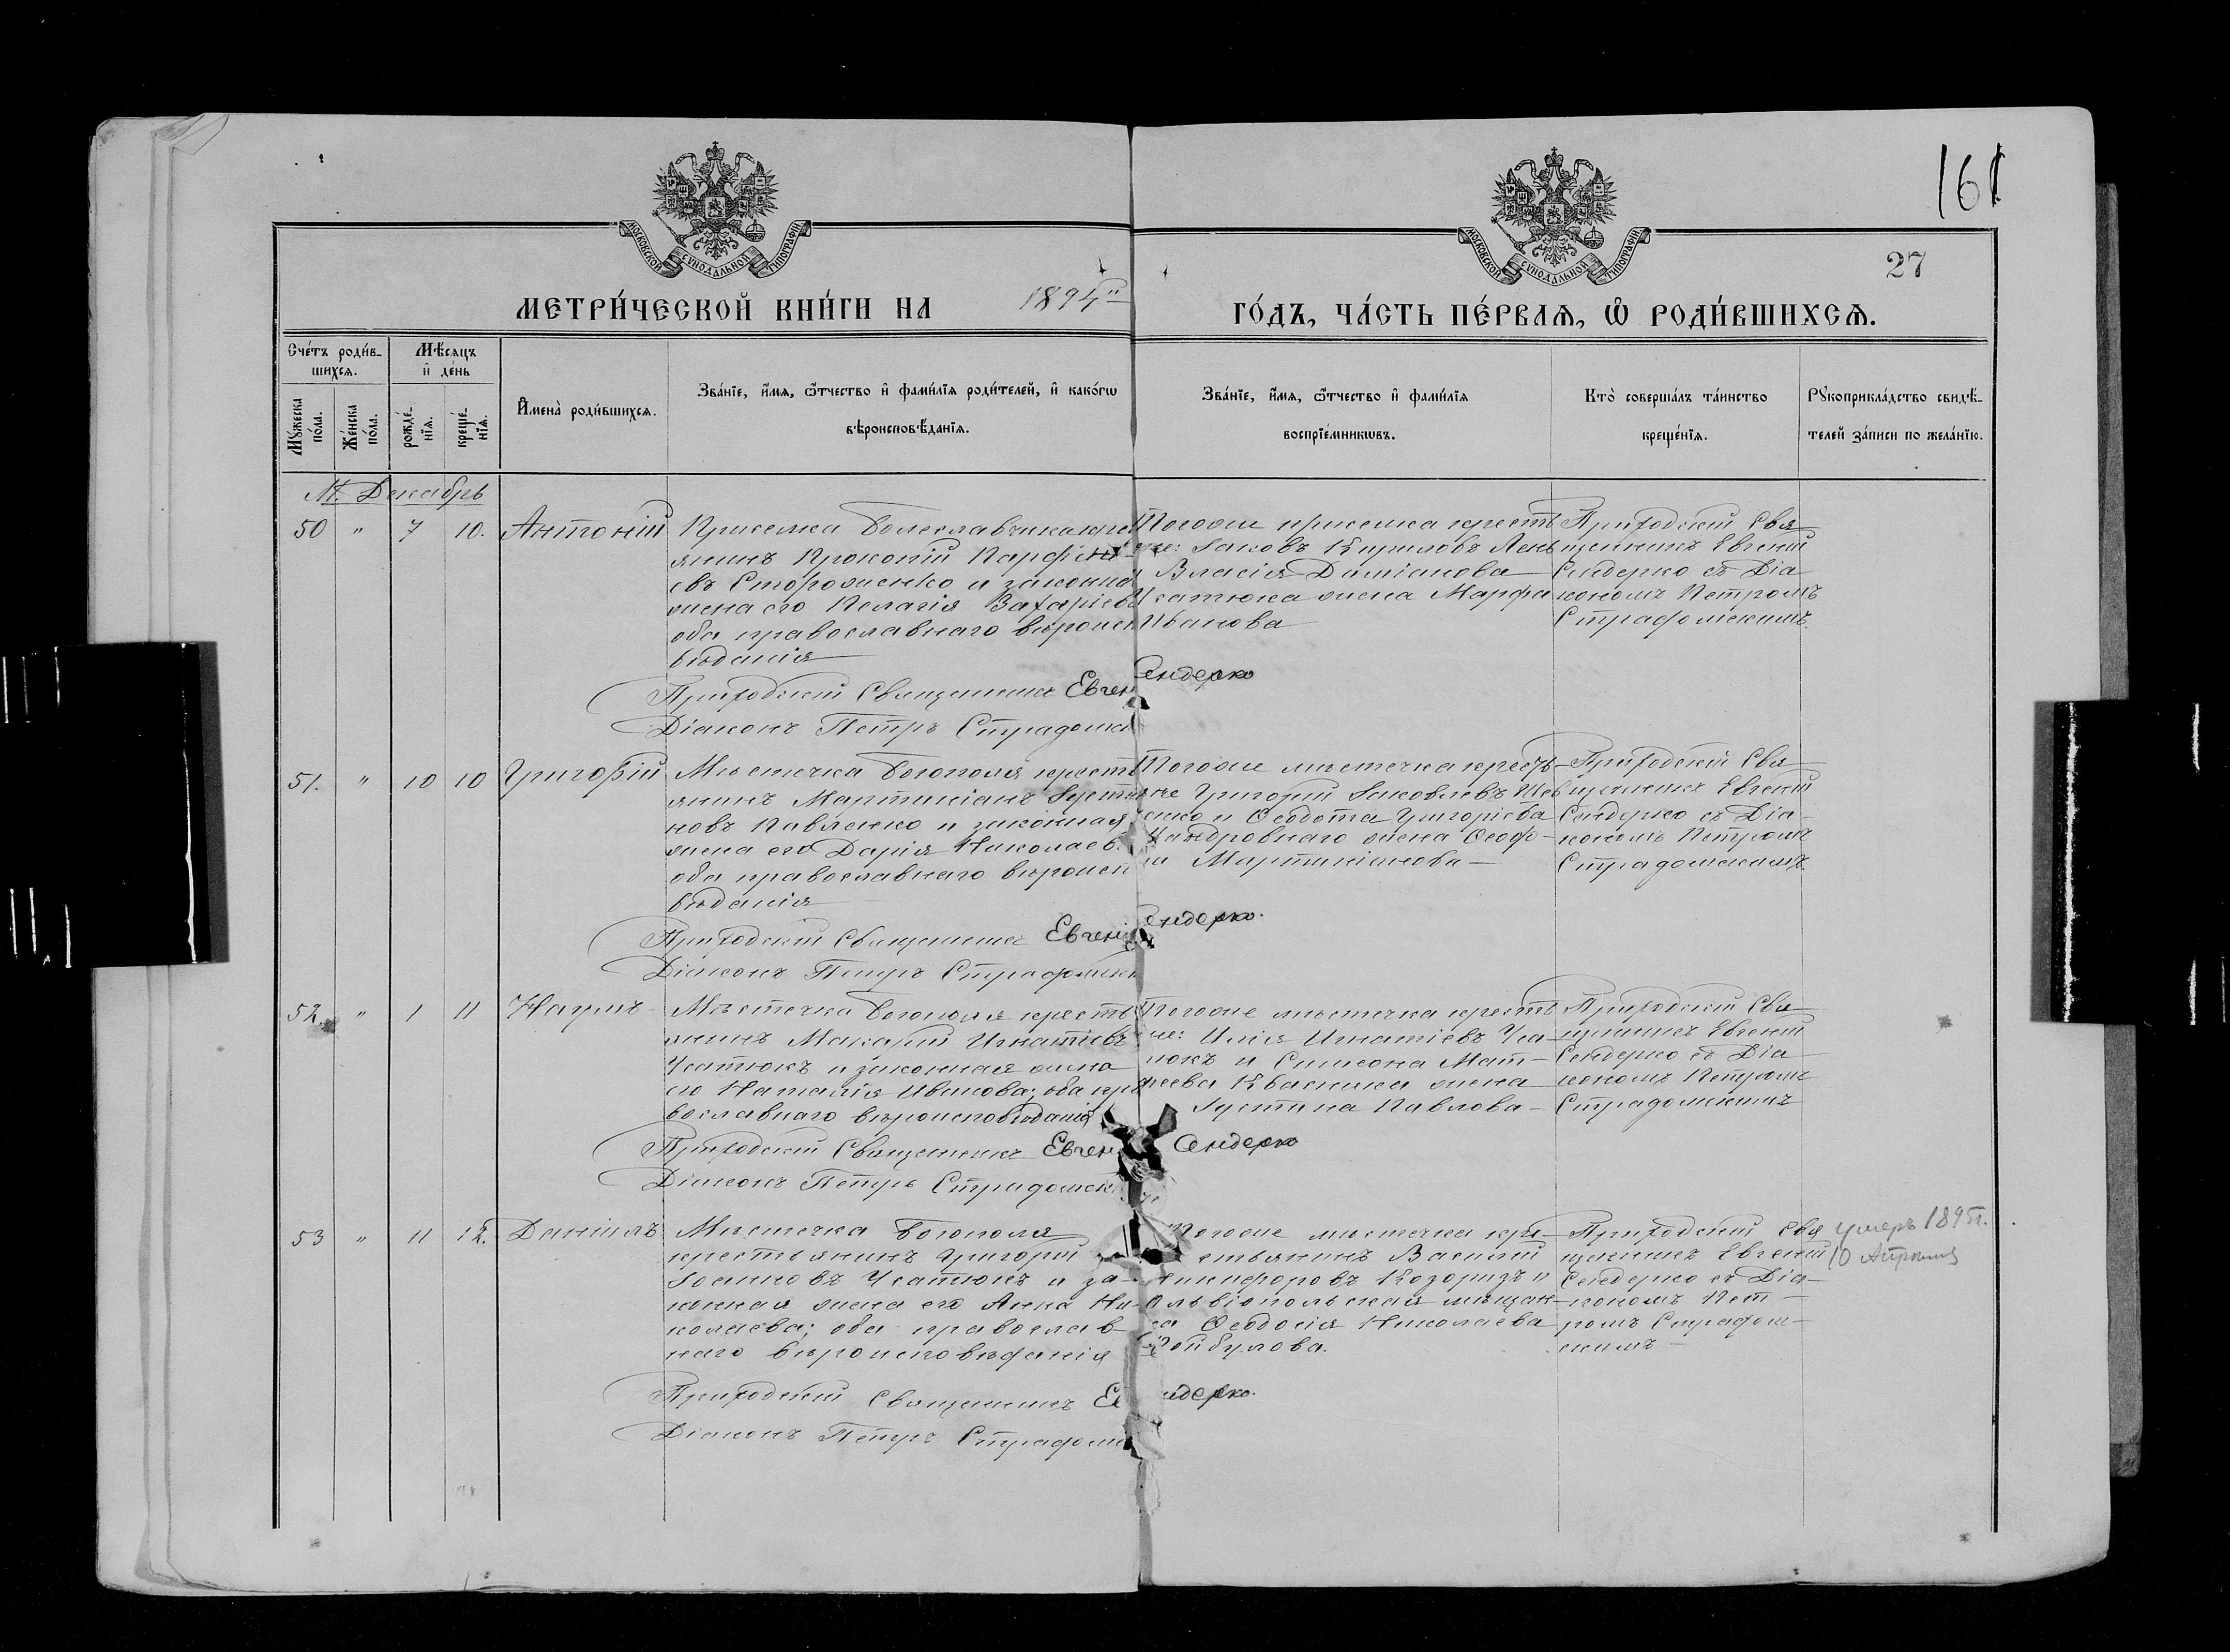 161
27
МОСКОВСКОЙ СѴНОДАЛЬНОЙ ТИПОГРАФІИ
МОСКОВСКОЙ СѴНОДАЛЬНОЙ ТИПОГРАФІИ
МЕТРИ́ЧЕСКОЙ КНИ́ГИ НА 1894
ГО́ДЪ, ЧА́СТЬ ПЕ́РВАѦ, Ѡ РОДИ́ВШИХСѦ.
Сче́тъ роди́в-
шихсѧ.
Мꙋ́жеска по́ла.
Же́нска по́ла.
Мѣ́сѧцъ
и҆ де́нь
рожде́-
нїѧ.
креще́-
нїѧ.
И҆мена̀ роди́вшихсѧ.
Зва́нїе, и҆́мѧ, ѻ҆́тчество и҆ фами́лїѧ роди́телей, и҆ како́гѡ
вѣроисповѣ́данїѧ.
Зва́нїе, и҆́мѧ, ѻ҆́тчество и҆ фами́лїѧ
воспрїе́мникѡвъ.
Кто̀ соверша́лъ та́инство
креще́нїѧ.
Рꙋкоприкла́дство свидѣ́-
телей за́писи по жела́нїю.
М. Декабрь
50 " 7 10. Антоній
Приселка Болеславчика кре
янинъ Прокопій Парфені-
евъ Стороженко и законная
жена его Пелагія Захаріева
оба православнаго вѣроисп
вѣданія
Тогоже приселка крестъ
Іаковъ Кириловъ
Власія Даміанова
жена Марфа
Иванова
Приходскій Свя
щенникъ Евгеній
Сендерко съ Діа
кономъ Петромъ
Страдомскимъ.
Приходскій Священникъ Евген Сендерко
Діаконъ Петръ Страдомск
51. " 10 10 Григорій
Мѣстечка Богополя крест
янинъ Мартиніанъ Іусти
новъ Павленко и законная
жена его Дарія Николаев.
оба православнаго вѣроисп
вѣданія
Тогоже мѣстечка крестъ-
яне Григорій Іаковлевъ Шев
енко и Ѳеодота Григоріева
жена Ѳеоф-
Мартиніанова
Приходскій Свя
щенникъ Евгеній
Сендерко съ Діа-
кономъ Петромъ
Страдомскимъ.
Приходскій Священникъ Евгені Сендерко.
Діаконъ Петръ Страдомск
52. " 1 11 Наумъ
Мѣстечка Богополя кресть
янинъ Макарій Игнатіевъ
Усатюкъ и законная жена
его Наталія Иванова; оба пра
вославнаго вѣроисповѣданія
Тогоже мѣстечка кресть
не: Илія Игнатіевъ Уса-
тюкъ и Симеона Мат-
ѳеева Квасника жена
Іустина Павлова-
Приходскій Свя
щенникъ Евгеній
Сендерко съ Діа
кономъ Петромъ
Страдомскимъ
Приходскій Священникъ Евген Сендерко
Діаконъ Петръ Страдомск
53 " 11 12. Даніилъ
Мѣстечка Богополя
крестьянинъ Григорій
Іосифовъ Усатюкъ и за-
конная жена его Анна Ни-
колаева; оба православ-
наго вѣроисповѣданія
Тогоже мѣстечка кре-
стьянинъ Василій
Никифоровъ Козоризъ и
Ольвіопольская мѣщан-
ка Ѳеодосія Николаева
Приходскій Свя
щенникъ Евгеній
Сендерко съ Діа-
кономъ Пет-
ромъ Страдом-
скимъ
умеръ 1895г.
10 Апрѣля
Приходскій Священникъ Ев ндерко.
Діаконъ Петръ Страдомск